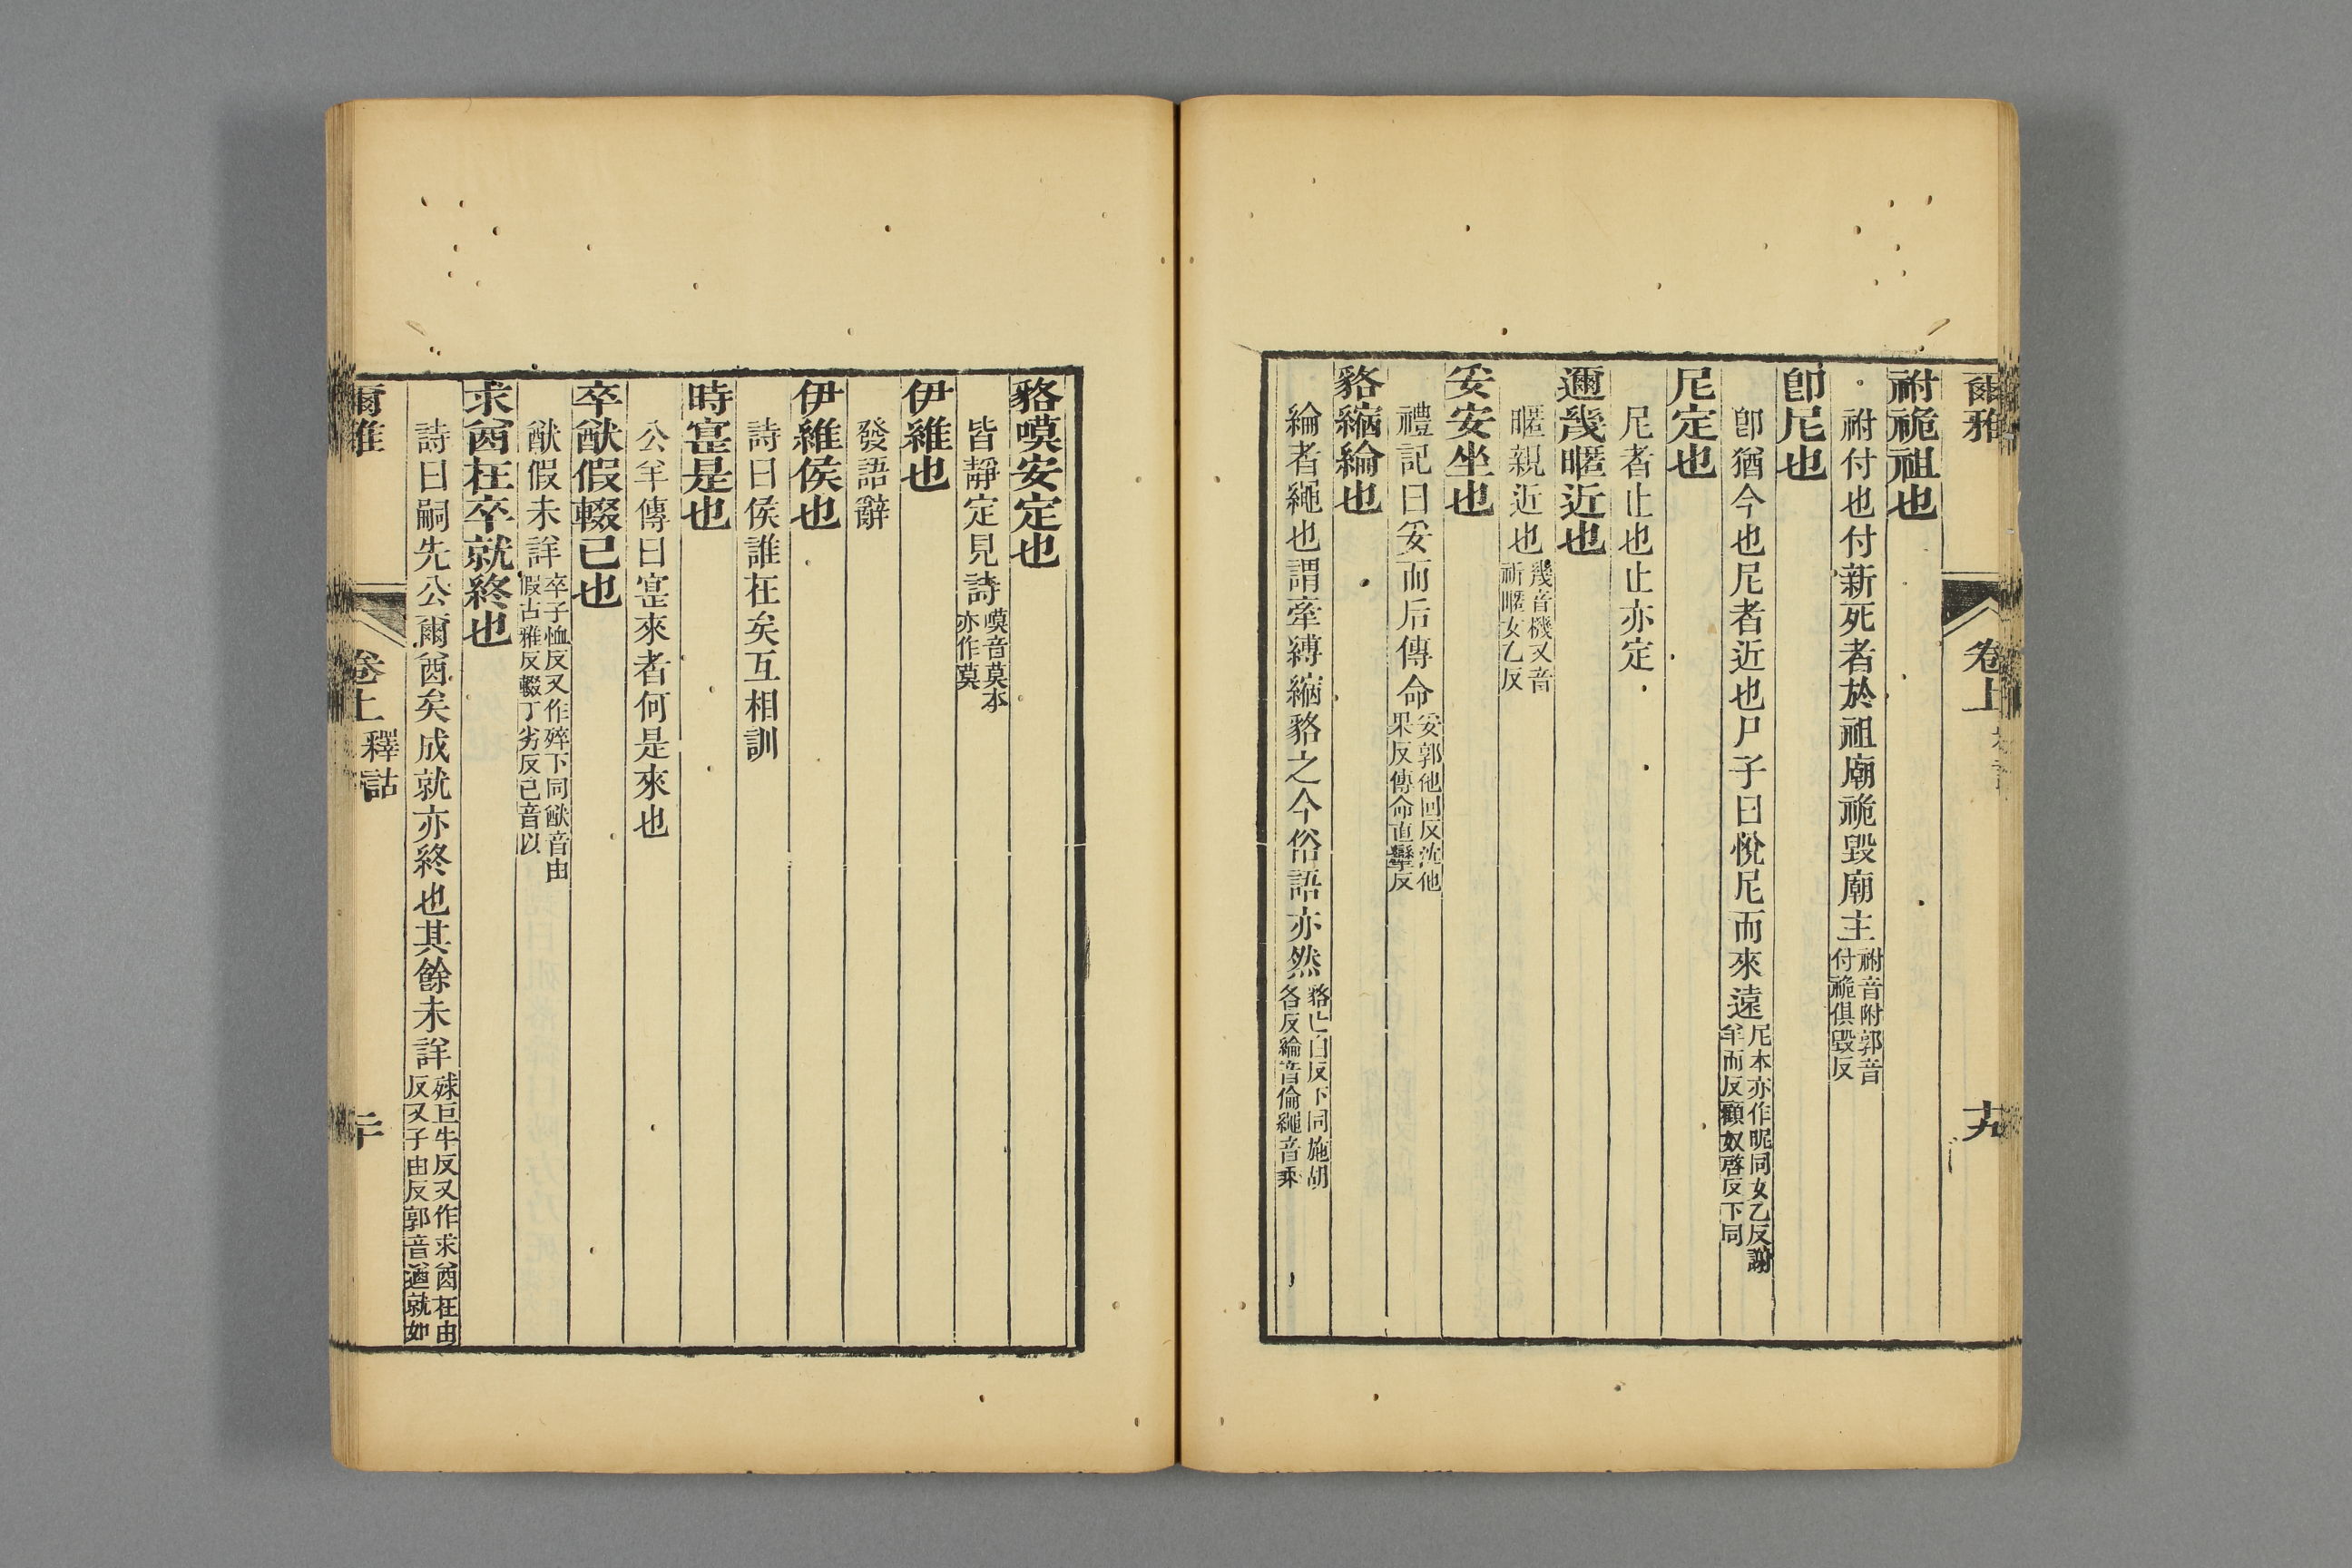 爾雅 卷上 十九
祔祪祖也
祔付也付新死者於祖廟祪毀廟主
祔音附郭音
付祪俱毀反
卽尼也
卽猶今也尼者近也尸子曰悅尼而來遠
尼本亦作昵同女乙反謝
羊而反顧奴啓反下同
尼定也
尼者止也止亦定
邇幾暱近也
暱親近也
幾音機又音
祈暱女乙反
妥安坐也
禮記曰妥而后傳命
妥郭他回反沈他
果反傳命直攣反
貉縮綸也
綸者繩也謂牽縛縮貉之今俗語亦然
貉亡白反下同施胡
各反綸音倫繩音乘
貉嗼安定也
皆靜定見詩
嗼音莫本
亦作莫
伊維也
發語辭
伊維侯也
詩曰侯誰在矣互相訓
時寔是也
公羊傳曰寔來者何是來也
卒猷假輟已也
猷假未詳
卒子恤反又作殚下同猷音由
假古雅反輟丁劣反已音以
求酋在卒就終也
詩曰嗣先公爾酋矣成就亦終也其餘未詳
殏巨牛反又作求酋在由
反又子由反郭音遒就如
爾雅 卷上 釋詁 二十